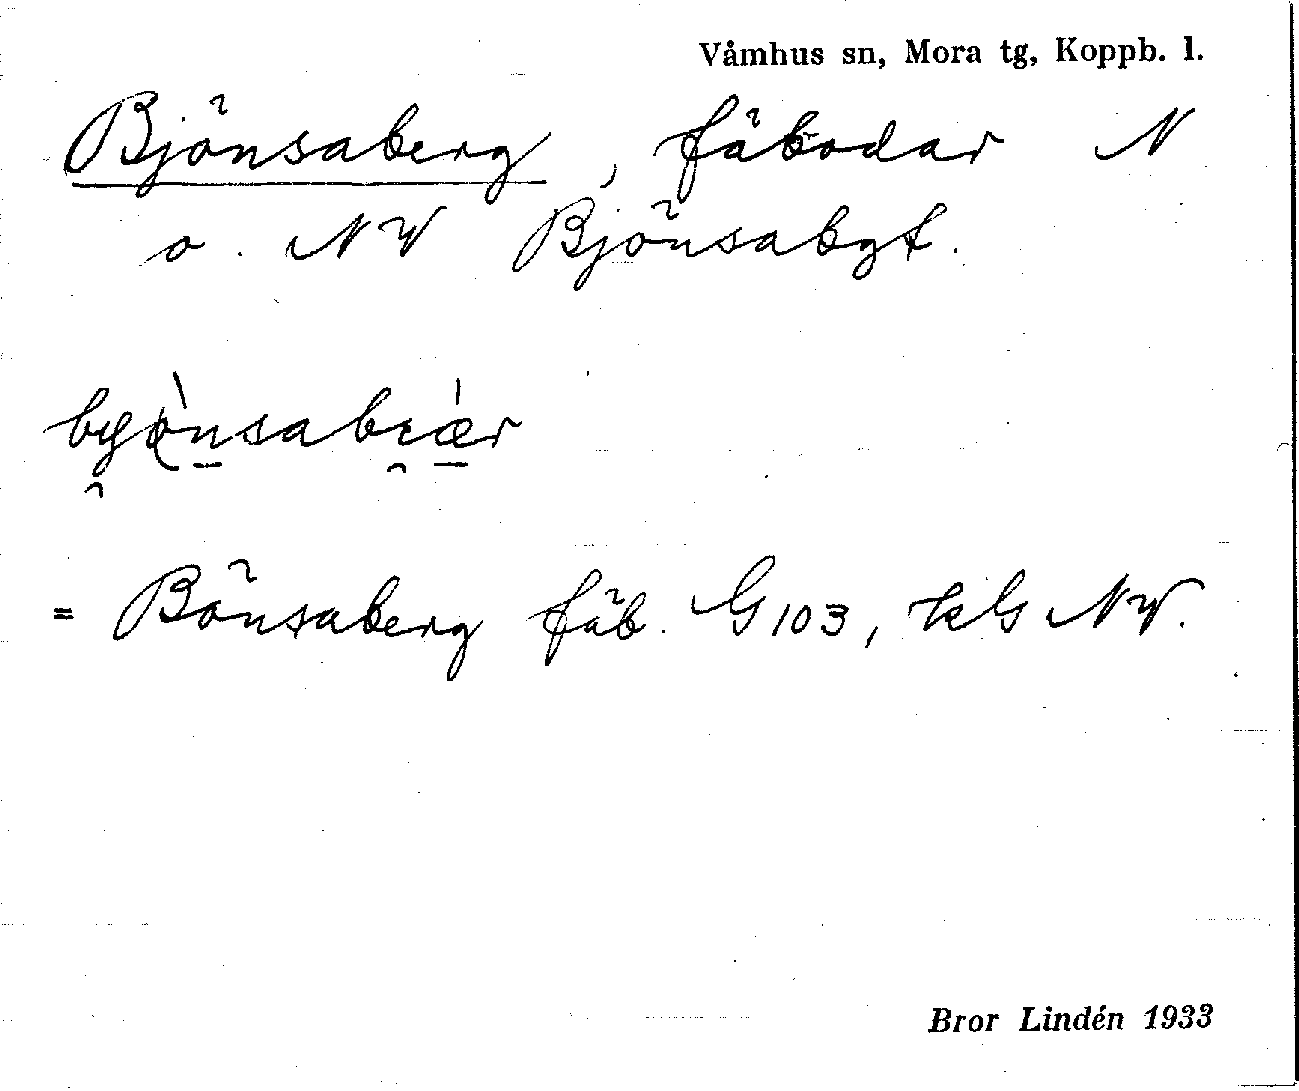 Våmhus sn, Mora tg, Koppb. l.
Bjönsaberg, fäbodar N
o. NV Bjönsabgt.
= Bönsaberg fäb. G 103, kG NV.
Bror Lindén 1933